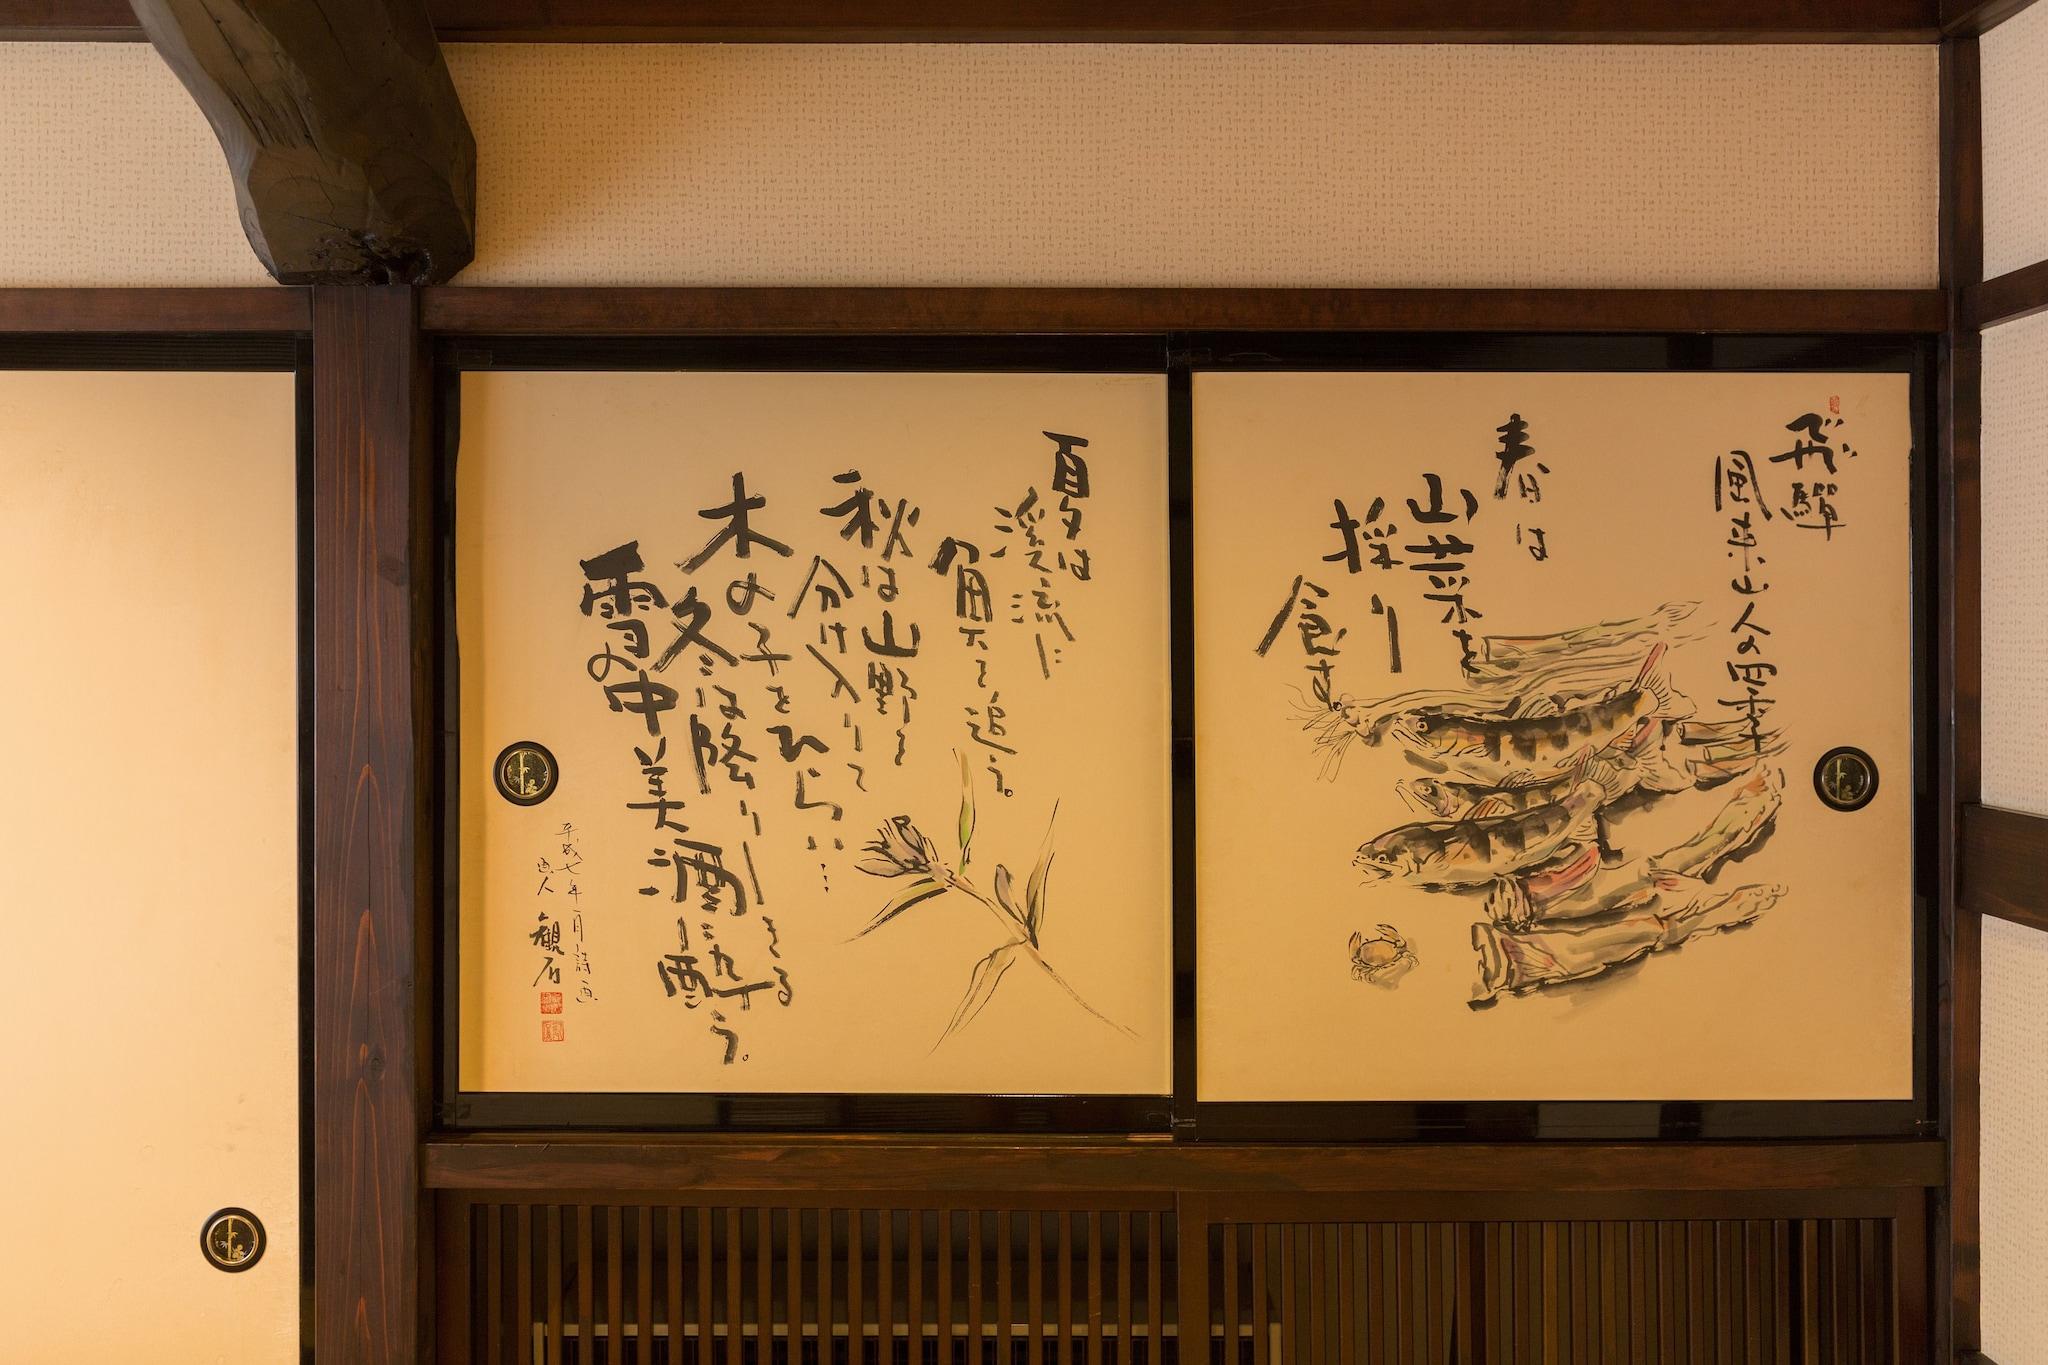 飛驒
風来山人の四季
春は
山菜を
採り
食す。
夏は
渓流に
魚を追う。
秋は山野を
分け入りて
木の子をひらい…
冬は降りしきる
雪の中美酒に酔う。
平成七年一月詩画
画人 観石